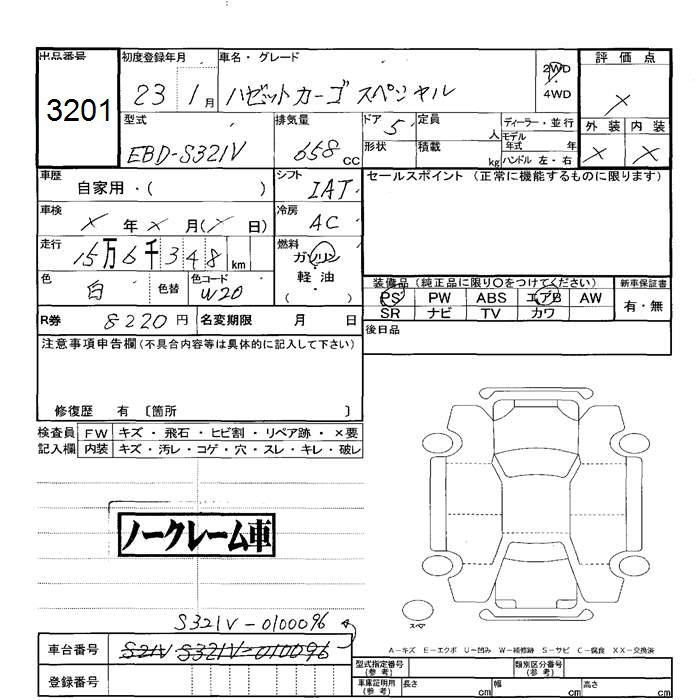 出品番号
3201
初度登録年月
23 1月
車名・グレード
ハゼットカーゴ スペシャル
2WD
4WD
評価点
×
外装 内装
× ×
型式
EBD-S321V
排気量
658 CC
ドア 5
形状
定員 人
積載 kg
ディーラー・並行
モデル
年式 年
ハンドル 左・右
車歴
自家用・( )
シフト
IAT
セールスポイント (正常に機能するものに限ります)
車検
× 年 × 月(× 日)
冷房
AC
走行
15万6千348 km
燃料
ガソリン
軽油
( )
色
白
色替
色コード
W20
装備品(純正品に限り○をつけてください)
PS PW ABS エアB AW
SR ナビ TV カワ
新車保証書
有・無
R券 8220円 名変期限 月 日
後日品
注意事項申告欄(不具合内容等は具体的に記入して下さい)
修復歴 有 〔箇所 〕
検査員 FW キズ・飛石・ヒビ割・リペア跡・×要
記入欄 内装 キズ・汚レ・コゲ・穴・スレ・キレ・破レ
ノークレーム車
S321V-0100096
車台番号 S21V S321V-010096
登録番号
スペア
A-キズ E-エクボ U-凹み W-補修跡 S-サビ C-腐食 XX-交換済
型式指定番号
(参考)
類別区分番号
(参考)
車庫証明用
(参考)
長さ cm 幅 cm 高さ cm